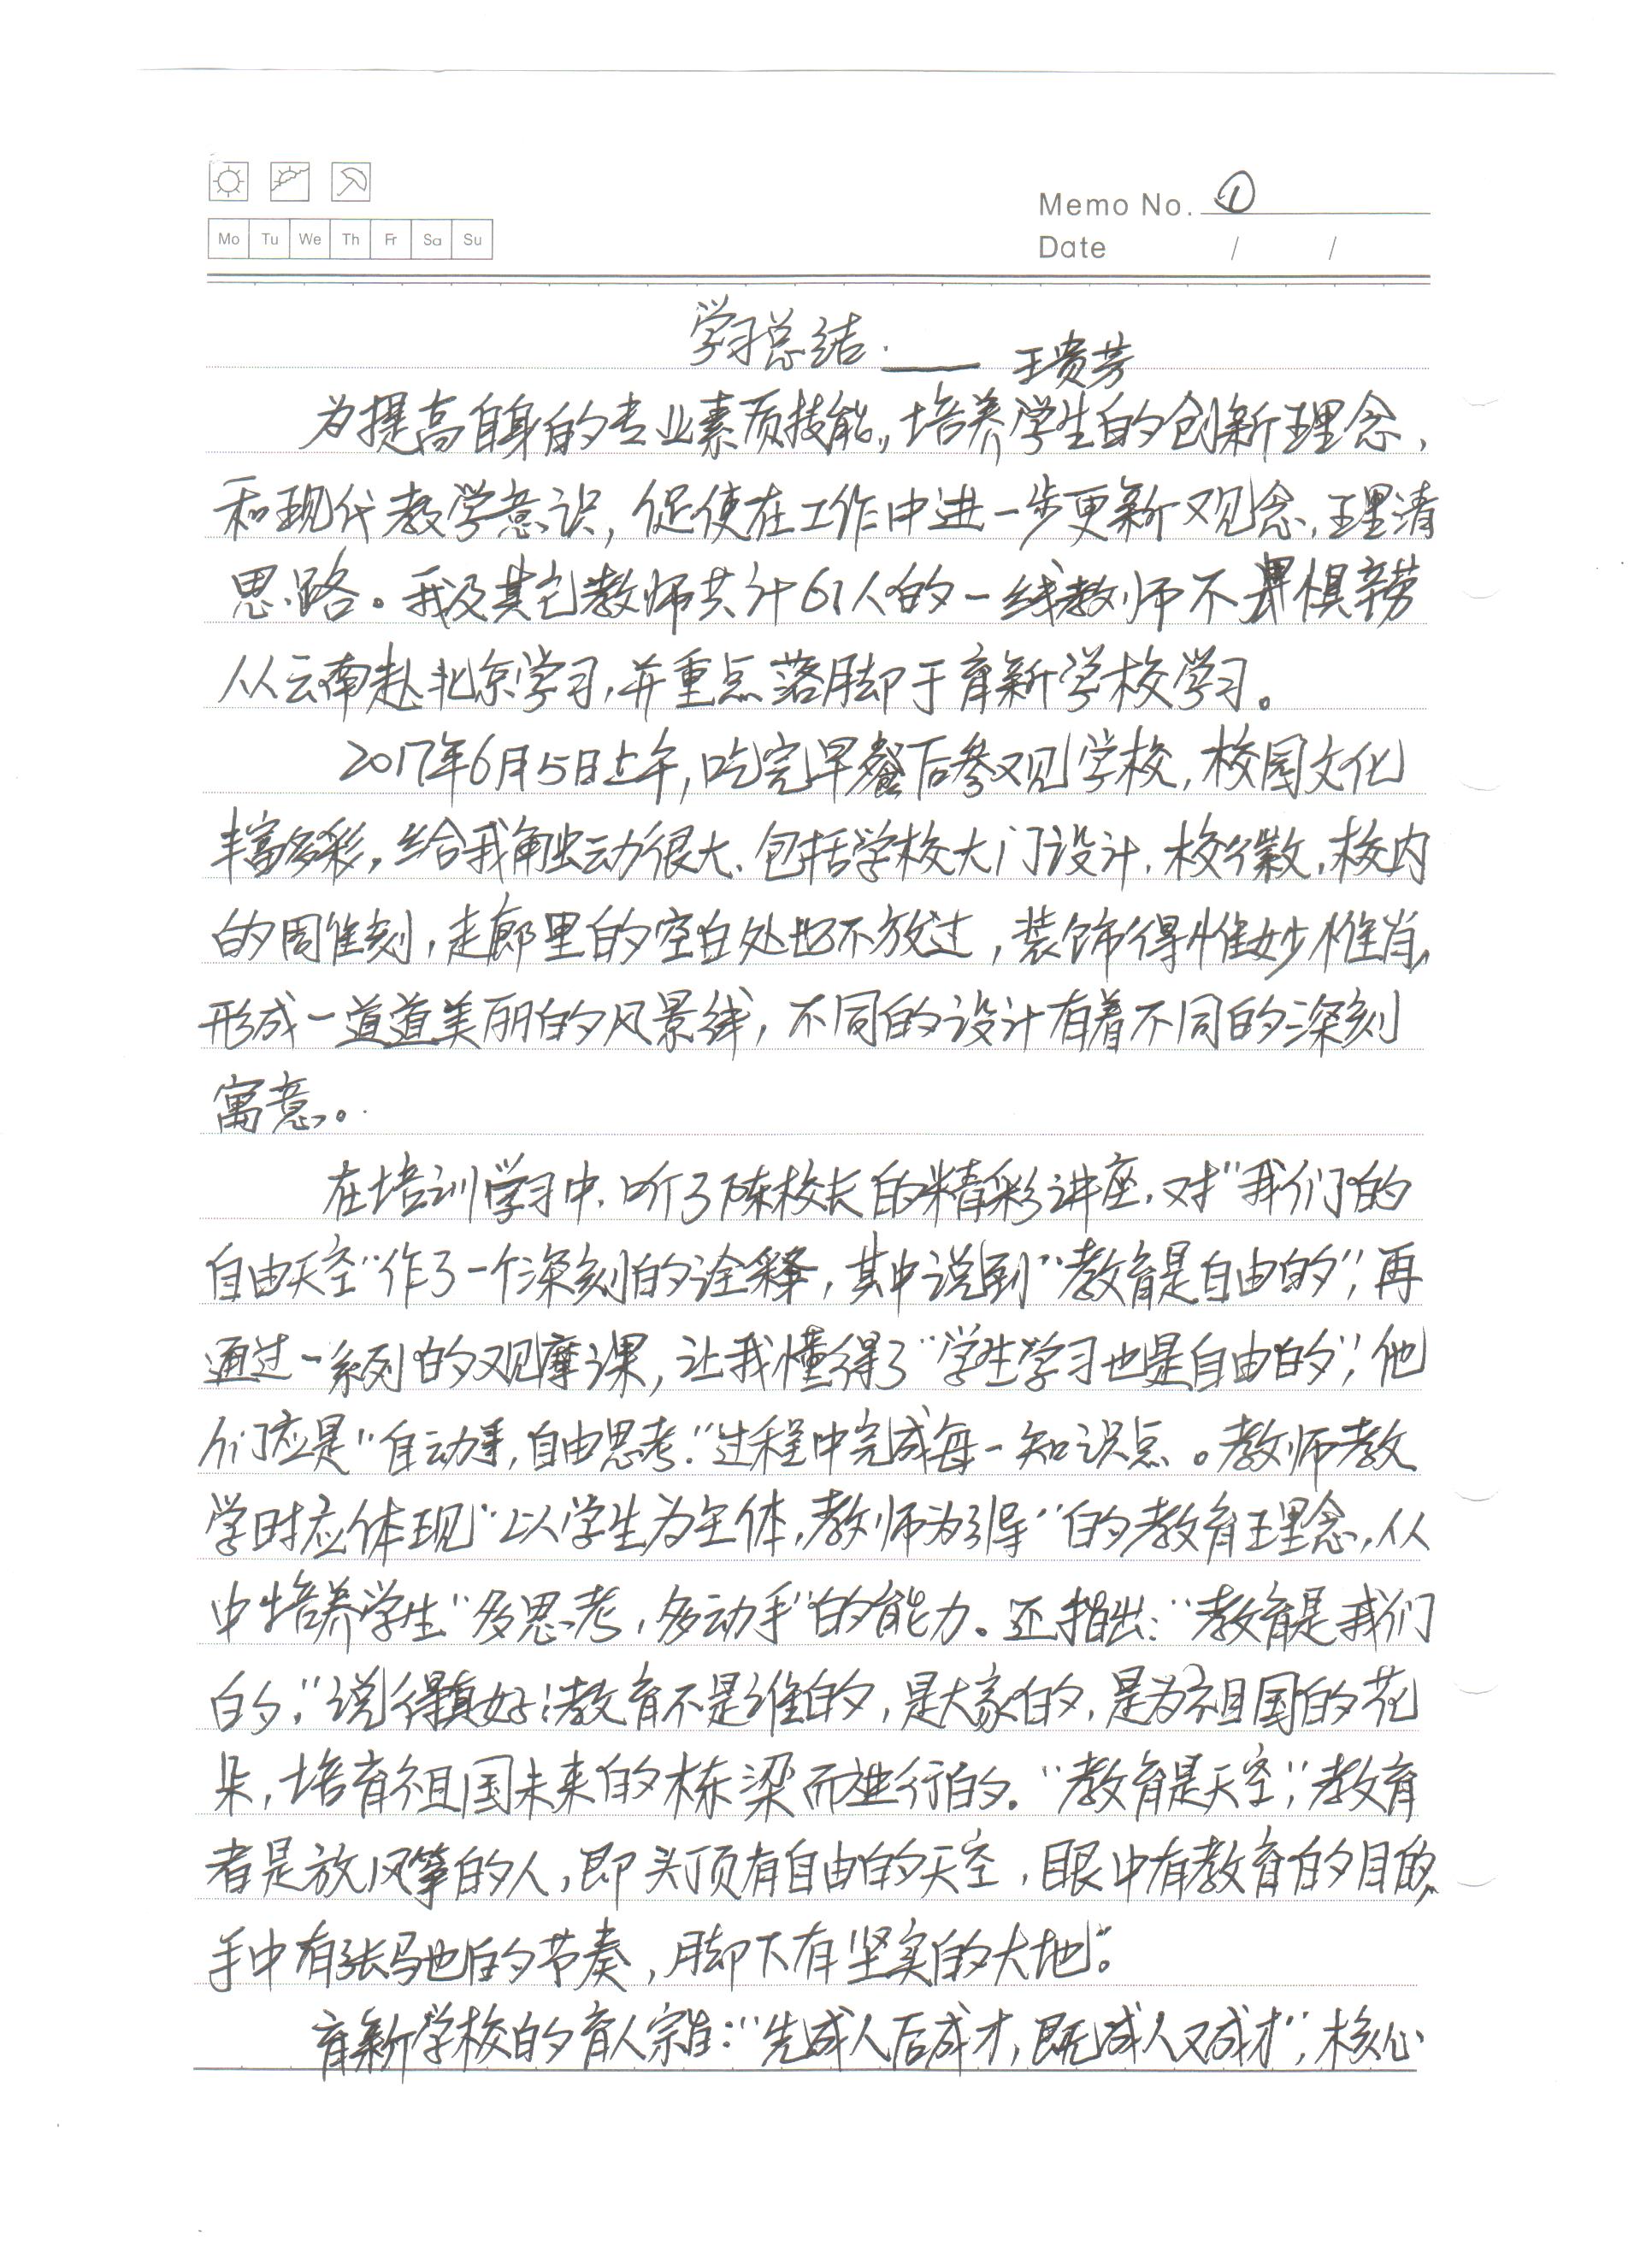 Memo No. ①
Mo Tu We Th Fr Sa Su
Date / /
学习总结.—— 王贵芳
为提高自身的专业素质技能,培养学生的创新理念,
和现代教学意识,促使在工作中进一步更新观念,理清
思路。我及其它教师共计61人的一线教师不畏惧辛劳
从云南赴北京学习,并重点落脚于育新学校学习。
2017年6月5日上午,吃完早餐后参观学校,校园文化
丰富多彩,给我触动很大、包括学校大门设计.校徽,校内
的周雕刻,走廊里的空白处也不放过,装饰得惟妙惟肖,
形成一道道美丽的风景线,不同的设计有着不同的深刻
寓意。
在培训学习中.听了陈校长的精彩讲座.对"我们的
自由天空"作了一个深刻的诠释,其中说到"教育是自由的",再
通过一系列的观摩课,让我懂得了"学生学习也是自由的",他
们应是"自动手,自由思考."过程中完成每一知识点。教师教
学时应体现"以学生为主体,教师为引导"的教育理念,从
中培养学生"多思考,多动手"的能力。还指出:"教育是我们
的,"说得真好!教育不是谁的,是大家的,是为祖国的花
朵,培育祖国未来的栋梁而进行的."教育是天空",教育
者是放风筝的人,即头顶有自由的天空,眼中有教育的目的,
手中有张驰的节奏,脚下有坚实的大地"。
育新学校的育人宗旨:"先成人后成才,既成人又成才",核心